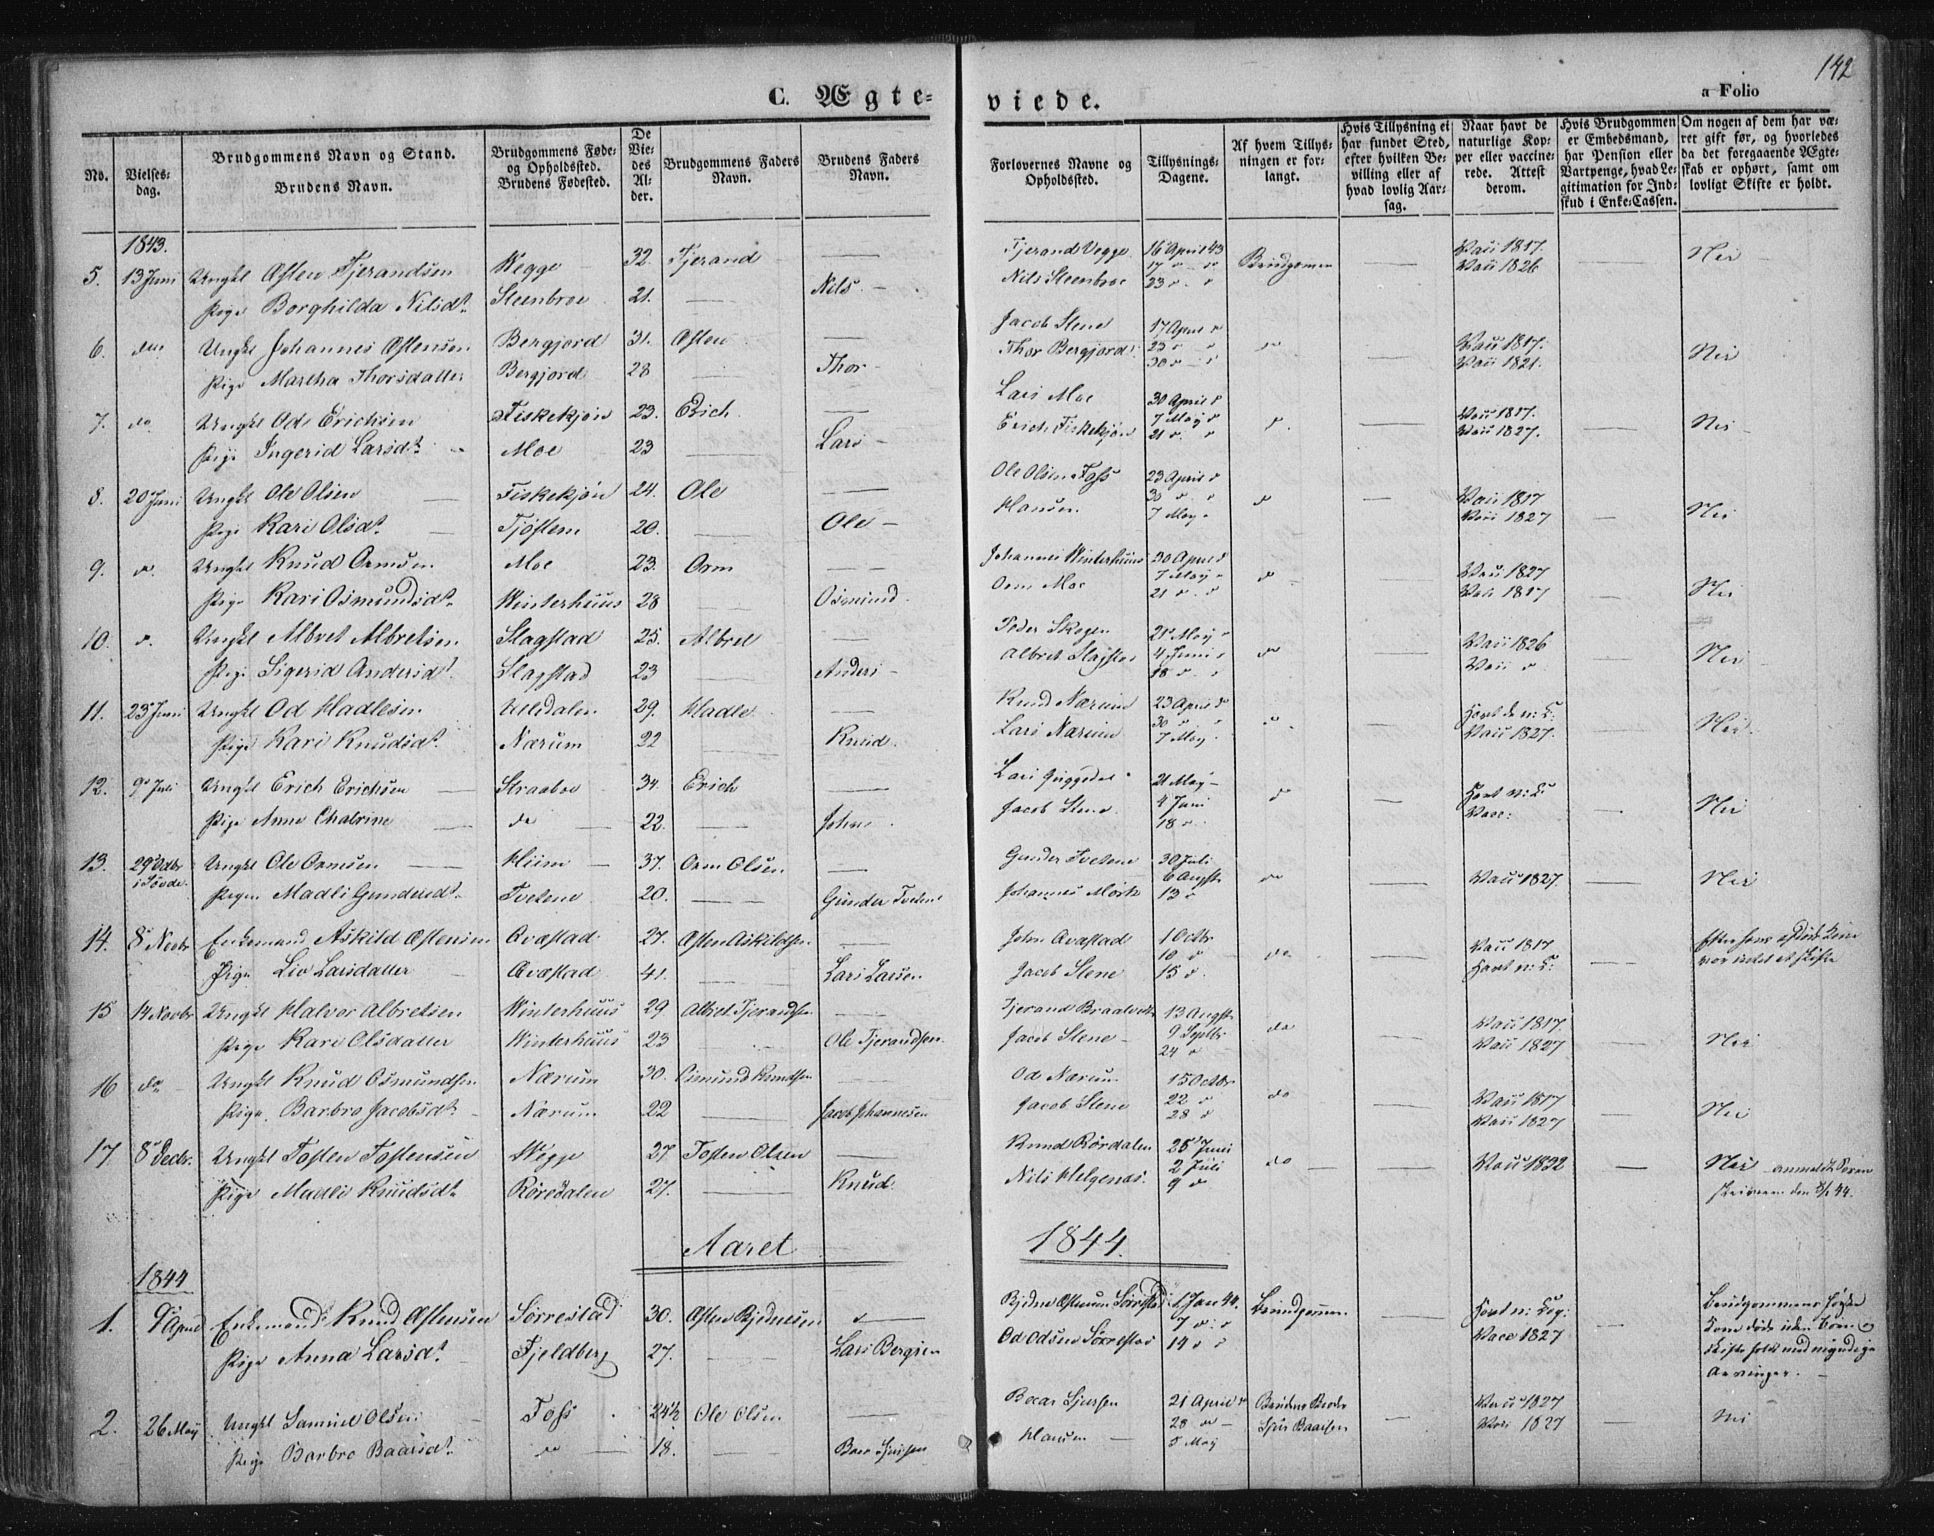 142
C. Ægte- viede.
a Folio
No.
Vielses-dag.
Brudgommens Navn og Stand.
Brudens Navn.
Brudgommens Føde- og Opholdssted. Brudens Fødested.
De Vie-des Al-der.
Brudgommens Faders Navn.
Brudens Faders Navn.
Forlovernes Navne og Opholdssted.
Tillysnings-Dagene.
Af hvem Tillys-ningen er for-langt.
Hvis Tillysning ei har fundet Sted, efter hvilken Be-villing eller af hvad lovlig Aar-sag.
Naar havt de naturlige Kop-per eller vaccine-rede. Attest derom.
Hvis Brudgommen er Embedsmand, har Pension eller Vartpenge, hvad Le-gitimation for Ind-skud i Enke-Cassen.
Om nogen af dem har væ-ret gift før, og hvorledes da det foregaaende Ægte-skab er ophørt, samt om lovligt Skifte er holdt.
1843.
5. 13 Juni Ungkl Østen Tjerandsen Wegge 32. Tjerand — Tjerand Vegge 16 April 43 Brudgommen — Vacc 1817. Nei
Pige Borghilda Nilsdt Steenbroe 21. — Nils Nils Steenbroe 17 23 Vacc 1826
6. do Ungkl Johannes Østensen Bergjord 31. Østen Jacob Stene 17 April do — Vacc 1817. Nei
Pige Martha Thorsdatter Bergjord 28 — Thor Thor Bergjord 23 30 Vacc 1821.
7. do Ungkl Od Erichsen Fiskekjøn 23. Erich — Lars Moe 30 April Vacc 1817. Nei
Pige Ingerid Larsdt Moe 23 — Lars Erich Fiskekjøn 7 May 21 Vacc 1827.
8. 20 Juni Ungkl Ole Olsen Fiskekjøn 24. Ole — Ole Olsen Foss 23 April do — Vacc 1817 — Nei
Pige Kari Olsdt Tjøstem 20. — Ole Hansen 30 7 May Vacc 1827
9. do Ungkl Knud Ormsen Moe 23. Orm — Johannes Winterhuus 30 April do — Vacc 1827 Nei
Pige Kari Osmundsdt Winterhuus 28 — Osmund Orm Moe 7 May 21 Vacc 1817
10. do Ungkl Albret Albretsen Slagstad 25. Albret — Peder Skogen 21 May do Vacc 1826 Nei
Pige Sigerid Andersdt Slagstad 23 — Anders Albret Slagstad 4 Juni 18
11. 23 Juni Ungkl Od Hadlesen 29. Hadle — Knud Nærum 23 April Havt d. n. K: Nei
Pige Kari Knudsdt Nærum 22 — Knud Lars Nærum 30 7 May Vacc 1827.
12. 9 Juli Ungkl Erich Erichsen Straaboe 34. Erich — Lars 21 May do — Havt n: K: Nei
Pige Anne Chatrine do 22. — Johan Jacob Stene 4 Juni 18 Vacc:
13. 29 Octbr i Søvde. Ungkl Ole Ormsen Hiim 37. Orm Olsen — Gunder Tvetene 30 Juli do — Vacc 1827. — Nei
Pigen Madli Gundersdt Tvetene 20. — Gunder Tvetene Johannes Mørk 6 Augst 13
14. 8 Novbr Enkemand Askild Østensen Qvastad 27. Østen Askildsen — John Qvastad 1 Octbr do — Vacc 1817
Pige Liv Larsdatter Qvastad 41. — Lars Larsen Jacob Stene 10 15 Havt n: K:
15 14 Novbr Ungkl Halvor Albretsen Winterhuus 29 Albret Tjerandsen — Tjerand 13 Augst do — Vacc 1817. Nei
Pige Kari Olsdatter Winterhuus 23 Ole Tjerandsen Jacob Stene 9 Septbr 24 Vacc 1827
16 do Ungkl Knud Osmundsen Nærum 30. Osmund Knudsen — Od Nærum 15 Octbr do — Vacc 1817 Nei
Pige Barbro Jacobsdt Nærum 22 — Jacob Johannesen Jacob Stene 22 28 Vacc 1827
17 8 Decbr. Ungkl Tosten Tostensen Wegge 37 Tosten Olsen — Knud Rørdalen 25 Juni do — Vacc 1822 — Nei
Pige Madli Knudsdt Røresdalen 27. — Knud. Nils Helgenæs. 2 Juli 9
Aaret 1844.
1844
1. 9 April Enkemand Knud Østensen Sørrestad 30. Østen Bjednesen Bjedne Østensen Sørrestad 1 Jan 44. Brudgommen Havt n: Kop: Brudgommens første
Pige Anna Larsdt Fjeldberg 27. — Lars Bergsen Od Odsen Sørrestad 7 14 Vacc 1827 Kone døde uden Børn Skifte holdt med myndige Arvinger.
2. 26 May Ungkl Samuel Olsen Foss 24½ Ole Olsen — Boar Sjursen 21 April Brudens Broder — Vacc 1827 — Nei
Pige Barbro Baarsdt do 18. — Baar Sjursen Hansen 28 5 May Sjur Baarsen Vacc 1827